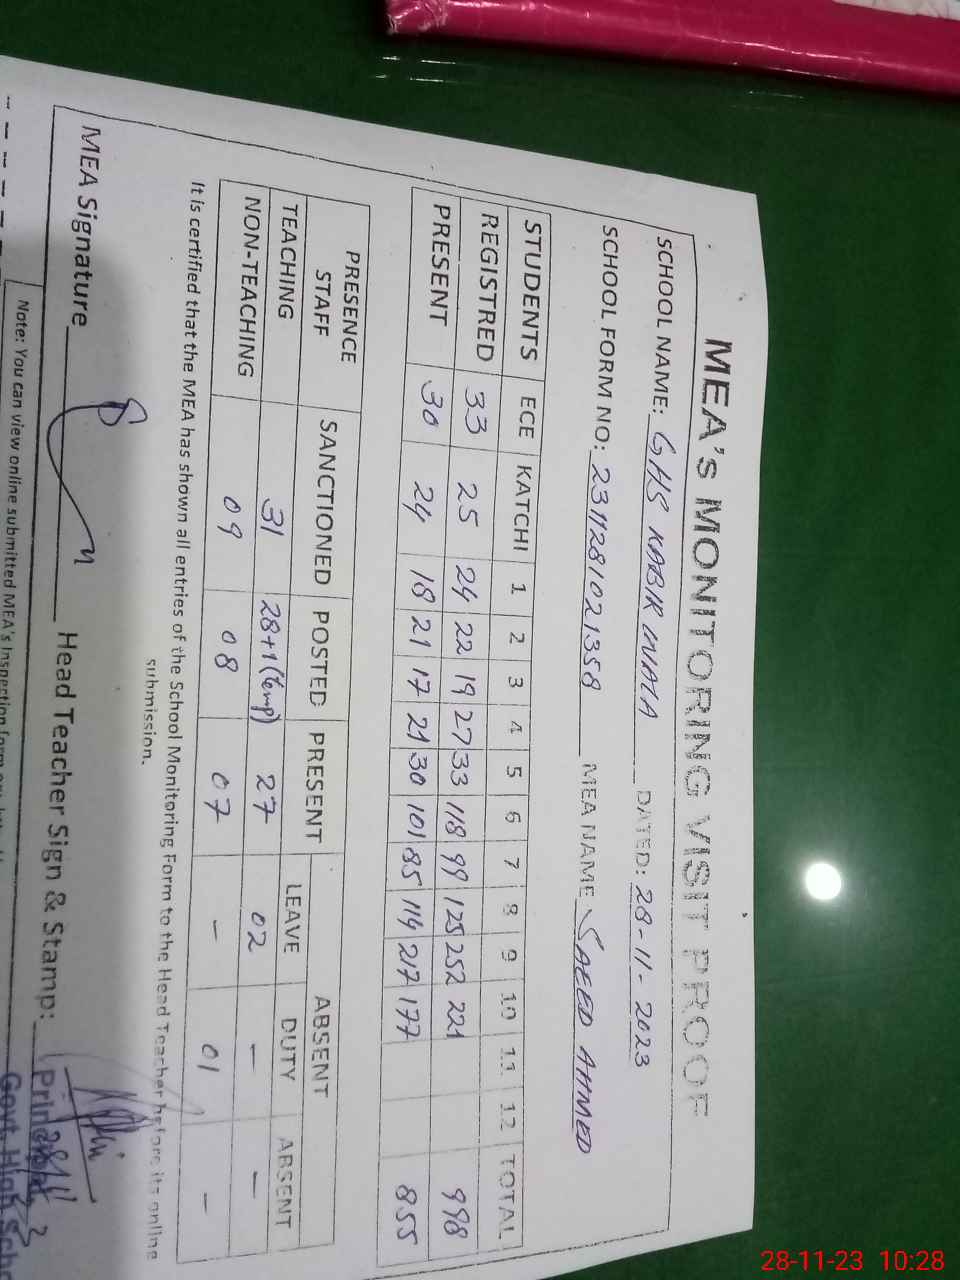 MEA's MONITORING VISIT PROOF
SCHOOL NAME: GHS KABIR WALA DATED: 28-11-2023
SCHOOL FORM NO: 2311281021358 MEA NAME SAEED AHMED
STUDENTS ECE KATCHI 1 2 3 4 5 6 7 8 9 10 11 12 TOTAL
REGISTRED 33 25 24 22 19 27 33 118 99 125 252 221 998
PRESENT 30 24 18 21 17 21 30 101 85 114 217 177 855
PRESENCE STAFF SANCTIONED POSTED PRESENT ABSENT
LEAVE DUTY ABSENT
TEACHING 31 28+1(temp) 27 02 - - 
NON-TEACHING 09 08 07 - 01 -
It is certified that the MEA has shown all entries of the School Monitoring Form to the Head Teacher before its online
submission.
MEA Signature Head Teacher Sign & Stamp:
Principal
Govt. High
Note: You can view online submitted MEA's Inspection form
28-11-23 10:28